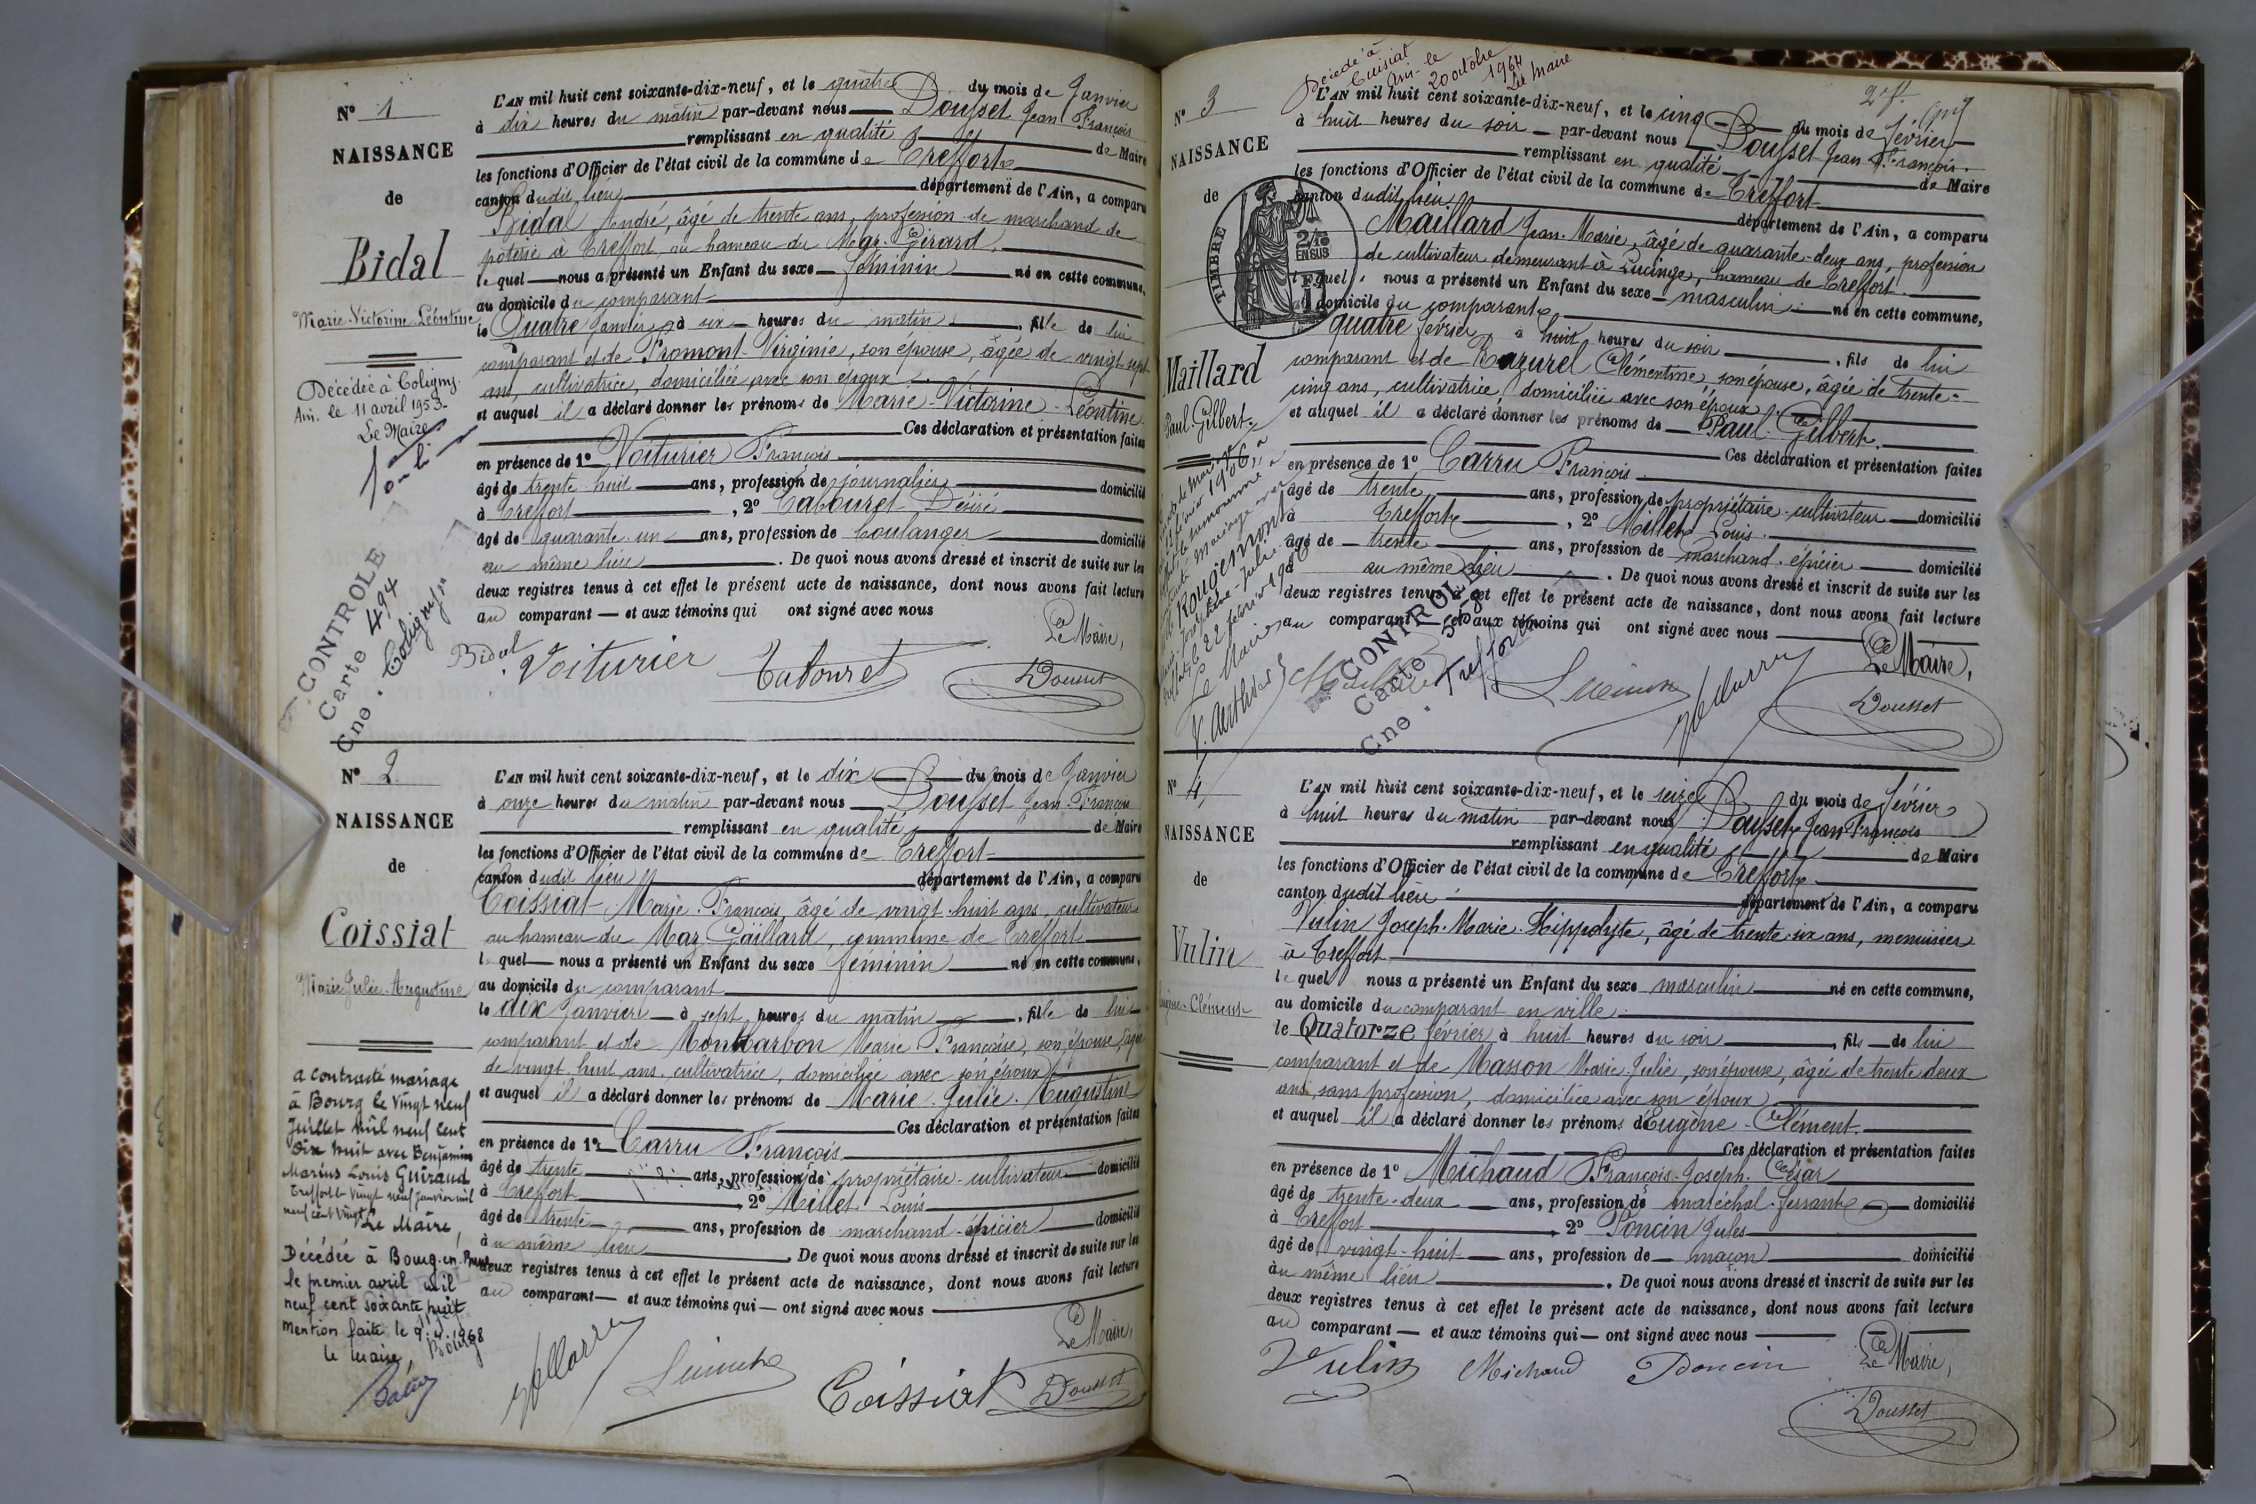 N° 1
NAISSANCE
de
Bidal
Marie-Victorine-Léontine
Décédée à Coligny
Ain. le 11 avril 1953.
Le Maire
CONTROLE
Carte 494
Cne. Coligny
L'AN mil huit cent soixante-dix-neuf, et le quatre du mois de Janvier
à dix heures du matin par-devant nous Dousset Jean François
remplissant en qualité de Maire
les fonctions d'Officier de l'état civil de la commune de Treffort
canton dudit lieu département de l'Ain, a comparu
Bidal André, âgé de trente ans, profession de marchand de
poterie à Treffort, au hameau du Mas-Girard.
lequel nous a présenté un Enfant du sexe féminin né en cette commune,
au domicile du comparant
le Quatre Janvier à six heures du matin, fille de lui
comparant et de Promont Virginie, son épouse, âgée de vingt sept
ans, cultivatrice, domiciliée avec son époux
et auquel il a déclaré donner les prénoms de Marie-Victorine-Léontine
Ces déclaration et présentation faites
en présence de 1° Voiturier François
âgé de trente-huit ans, profession de journalier domicilié
à Treffort, 2° Tabouret Désiré
âgé de quarante-un ans, profession de boulanger domicilié
au même lieu. De quoi nous avons dressé et inscrit de suite sur les
deux registres tenus à cet effet le présent acte de naissance, dont nous avons fait lecture
au comparant et aux témoins qui ont signé avec nous
Le Maire,
Bidal Voiturier Tabouret Dousset
N° 2
NAISSANCE
de
Coissiat
Marie Julie-Augustine
a contracté mariage
à Bourg le vingt neuf
Juillet mil neuf cent
dix huit avec Benjamin
Marius Louis Guiraud
Treffort le vingt neuf janvier mil
neuf cent vingt
Le Maire,
Décédée à Bourg-en-Bresse
le premier avril mil
neuf cent soixante huit
mention faite le 9.4.1968
le maire,
L'AN mil huit cent soixante-dix-neuf, et le dix du mois de Janvier
à onze heures du matin par-devant nous Dousset Jean-François
remplissant en qualité de Maire
les fonctions d'Officier de l'état civil de la commune de Treffort
canton dudit lieu département de l'Ain, a comparu
Coissiat Marie-François, âgé de vingt-huit ans, cultivateur
au hameau du Mas Gaillard, commune de Treffort
lequel nous a présenté un Enfant du sexe féminin né en cette commune,
au domicile du comparant
le dix Janvier à sept heures du matin, fille de lui
comparant et de Montbarbon Marie Françoise, son épouse, âgée
de vingt-huit ans, cultivatrice, domiciliée avec son époux
et auquel il a déclaré donner les prénoms de Marie-Julie-Augustine
Ces déclaration et présentation faites
en présence de 1° Carru François
âgé de trente ans, profession de propriétaire-cultivateur domicilié
à Treffort 2° Millet Louis
âgé de trente ans, profession de marchand-épicier domicilié
au même lieu. De quoi nous avons dressé et inscrit de suite sur les
deux registres tenus à cet effet le présent acte de naissance, dont nous avons fait lecture
au comparant et aux témoins qui ont signé avec nous
Le Maire,
Coissiat Dousset
Décédé à
Cuisiat
Ain-le
20 octobre
1964
Le Maire
2 f.
N° 3
NAISSANCE
de
TIMBRE
2/10
EN SUS
1F
Maillard
Paul-Gilbert
Rougemont
Le Maire
CONTROLE
Carte
Cne. Treffort
L'AN mil huit cent soixante-dix-neuf, et le cinq du mois de février
à huit heures du soir par-devant nous Dousset Jean François
remplissant en qualité de Maire
les fonctions d'Officier de l'état civil de la commune de Treffort
canton dudit lieu département de l'Ain, a comparu
Maillard Jean-Marie, âgé de quarante-deux ans, profession
de cultivateur demeurant à Lucinge, hameau de Treffort.
lequel nous a présenté un Enfant du sexe masculin né en cette commune,
au domicile du comparant
quatre février à huit heures du soir, fils de lui
comparant et de Razurel Clémentine, son épouse, âgée de trente-
cinq ans, cultivatrice, domiciliée avec son époux
et auquel il a déclaré donner les prénoms de Paul-Gilbert
Ces déclaration et présentation faites
en présence de 1° Carru François
âgé de trente ans, profession de propriétaire-cultivateur domicilié
à Treffort, 2° Millet Louis
âgé de trente ans, profession de marchand-épicier domicilié
au même lieu. De quoi nous avons dressé et inscrit de suite sur les
deux registres tenus à cet effet le présent acte de naissance, dont nous avons fait lecture
au comparant et aux témoins qui ont signé avec nous
Le Maire,
Dousset
N° 4
NAISSANCE
de
Vulin
L'AN mil huit cent soixante-dix-neuf, et le seize du mois de février
à huit heures du matin par-devant nous Dousset Jean François
remplissant en qualité de Maire
les fonctions d'Officier de l'état civil de la commune de Treffort
canton dudit lieu département de l'Ain, a comparu
Vulin Joseph-Marie-Hippolyte, âgé de trente-six ans, menuisier
à Treffort
lequel nous a présenté un Enfant du sexe masculin né en cette commune,
au domicile du comparant en ville
le Quatorze février à huit heures du soir, fils de lui
comparant et de Masson Marie Julie, son épouse, âgée de trente deux
ans, sans profession, domiciliée avec son époux
et auquel il a déclaré donner les prénoms d'Eugène-Clément
Ces déclaration et présentation faites
en présence de 1° Michaud François-Joseph-César
âgé de trente-deux ans, profession de maréchal-ferrant domicilié
à Treffort 2° Poncin Jules
âgé de vingt-huit ans, profession de maçon domicilié
au même lieu. De quoi nous avons dressé et inscrit de suite sur les
deux registres tenus à cet effet le présent acte de naissance, dont nous avons fait lecture
au comparant et aux témoins qui ont signé avec nous
Le Maire,
Vulin Michaud Poncin
Dousset